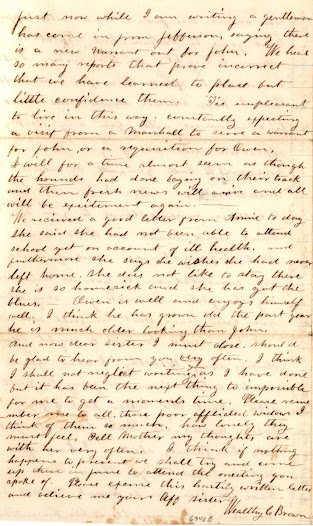 just now while I am writing a gentleman
has come in from Jefferson, saying there
is a new warrant out for John. We hear
so many reports that prove incorrect
that we have learned to place but
little confidence them. Tis unpleasant
to live in this way, constantly expecting
a visit from a Marshall to serve a warrant
for John, or a requisition for Owen.
I will for a time almost seem as though
the hounds had done baying on their track
and then fresh news will arrive and all
will be excitement again.
We received a good letter from Annie to day
she said she had not been able to attend
school yet on account of ill health. and
furthermore she says she wishes she had never
left home. she does not like to stay there
she is so homesick and she has got the
blues. Owen is well and enjoys himself
well, I think he has grown old the past year
he is much older looking than John.
And now dear sister I must close. should
be glad to hear from you very often. I think
I shall not neglect writing as I have done
but it has been the next thing to impossible
for me to get a moments time. Please reme
mber me to all, those poor afflicted widows I
think of them so much, how lonely they
must feel. Tell Mother my thoughts are
with her very often. I think if nothing
happens to prevent we shall try and come
up there in June to attend the meeting you
spoke of. Please excuse this hastily written letter
and believe me yours Aff sister
Wealthy C Brown